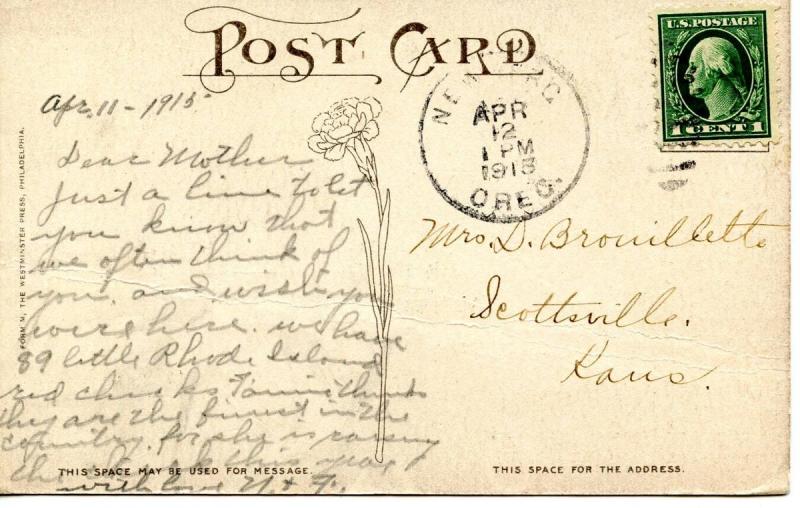 POST CARD
U.S. POSTAGE
1 CENT 1
NEWBERG
APR
12
1 PM
1915
OREG.
Apr. 11 - 1915
Dear Mother
Just a line to let
you know that
we often think of
you. and wish you
were here. we have
89 little Rhode Island
red chicks Fannie thinks
they are the finest in the
country. for she is raising
the this year
with love
Mrs. D. Brouillette
Scottsville.
Kans.
FORM M, THE WESTMINSTER PRESS, PHILADELPHIA.
THIS SPACE MAY BE USED FOR MESSAGE.
THIS SPACE FOR THE ADDRESS.